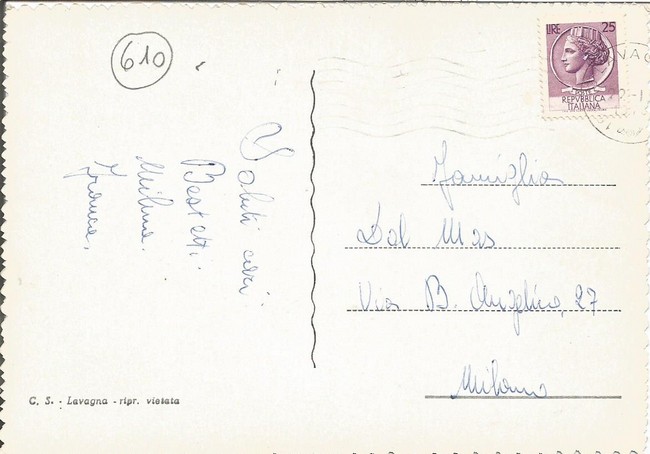 610
LIRE 25
POSTE
REPVBBLICA
ITALIANA
Saluti cari
Bestetti
Milena
Franca,
Famiglia
Dal Mas
Via B. Angelico, 27
Milano
C. S. - Lavagna - ripr. vietata